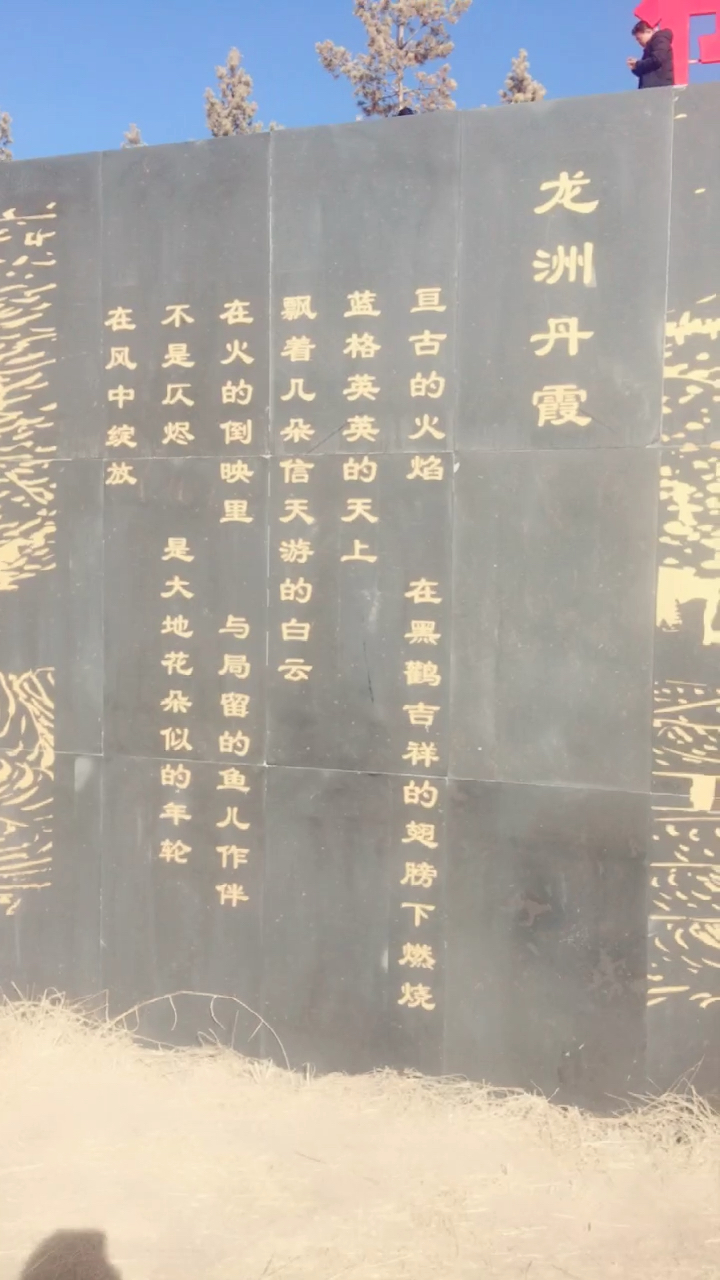 龙洲丹霞
亘古的火焰 在黑鹳吉祥的翅膀下燃烧
蓝格英英的天上
飘着几朵信天游的白云
在火的倒映里 与局留的鱼儿作伴
不是仄烬 是大地花朵似的年轮
在风中绽放